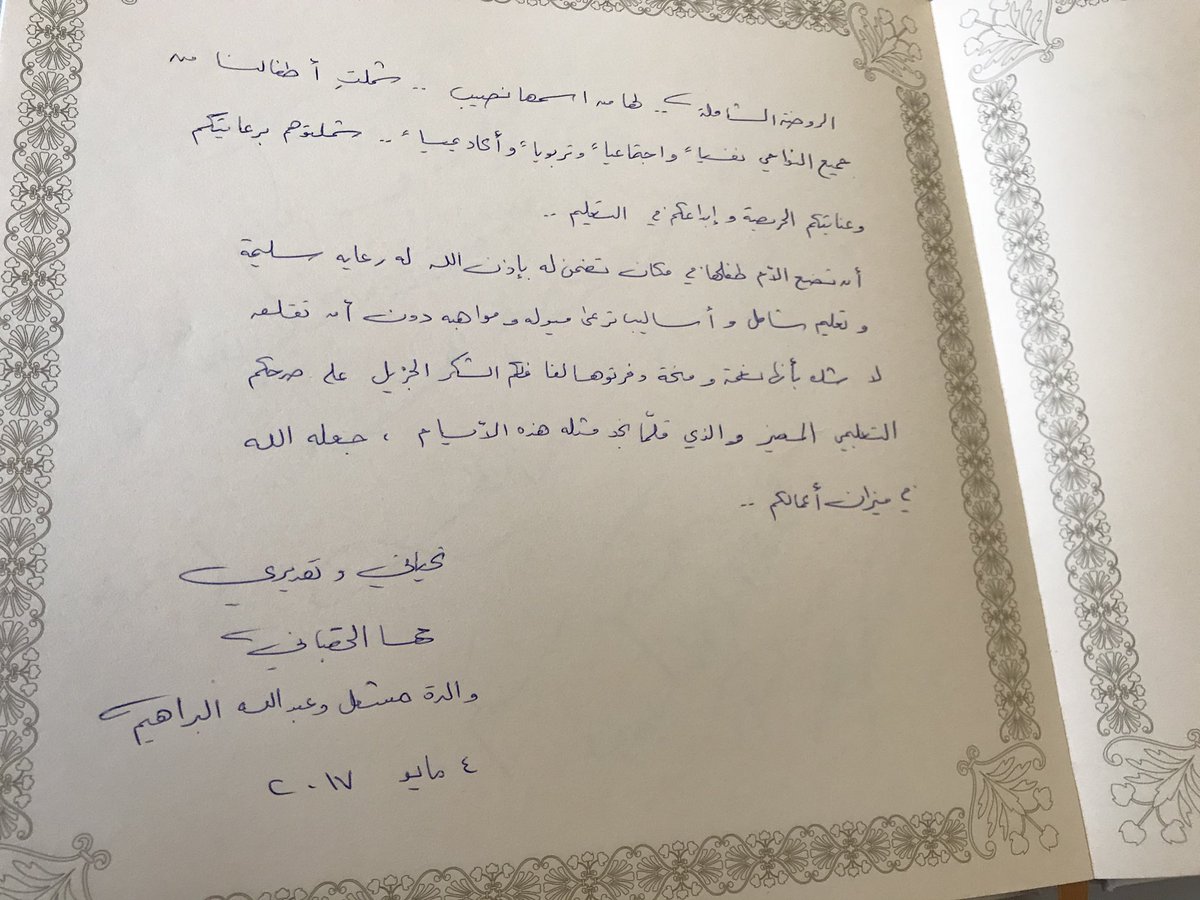 الروضة الشاملة .. لها من اسمها نصيب .. شملتِ أطفالنا من
جميع النواحي نفسياً واجتماعياً وتربوياً وأكاديمياً .. شملتوهم برعايتكم
وعنايتكم الحريصة وإبداعكم في التعليم ..
أن تضع الأم طفلها في مكان تضمن له بإذن الله له رعايه سليمة
وتعليم شامل وأساليب ترعى ميوله ومواهبه دون أن تقلق
لا شك بأنها نعمة ومنحة وفرتوها لنا فلكم الشكر الجزيل على صرحكم
التعليمي المميز والذي قلّما نجد مثله هذه الأيام ، جعله الله
في ميزان أعمالكم ..
تحياتي وتقديري
مها الحقباني
والدة مشعل وعبدالله البراهيم
٤ مايو ٢٠١٧